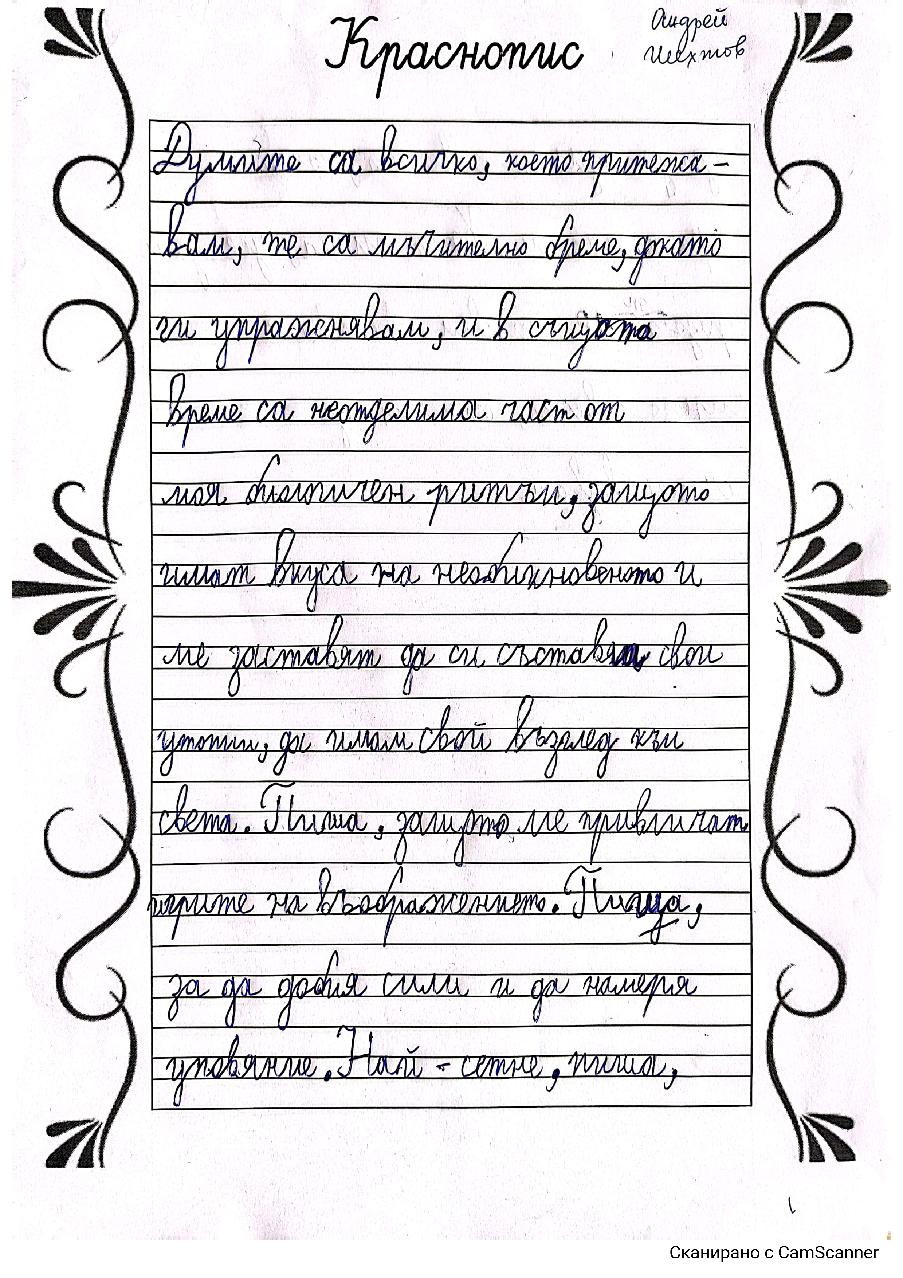 Краснопис
Андрей
Шехтов
Думите са всичко, което притежа-
вам, те са мъчително бреме, докато
ги упражнявам, и в същото
време са неотделима част от
моя биологичен ритъм, защото
имат вкуса на необикновеното и
ме заставят да си съставям свои
утопии, да имам свой възглед към
света. Пиша, защото ме привличат
игрите на въображението. Пиша,
за да добия сили и да намеря
упование. Най-сетне, пиша,
Сканирано с CamScanner